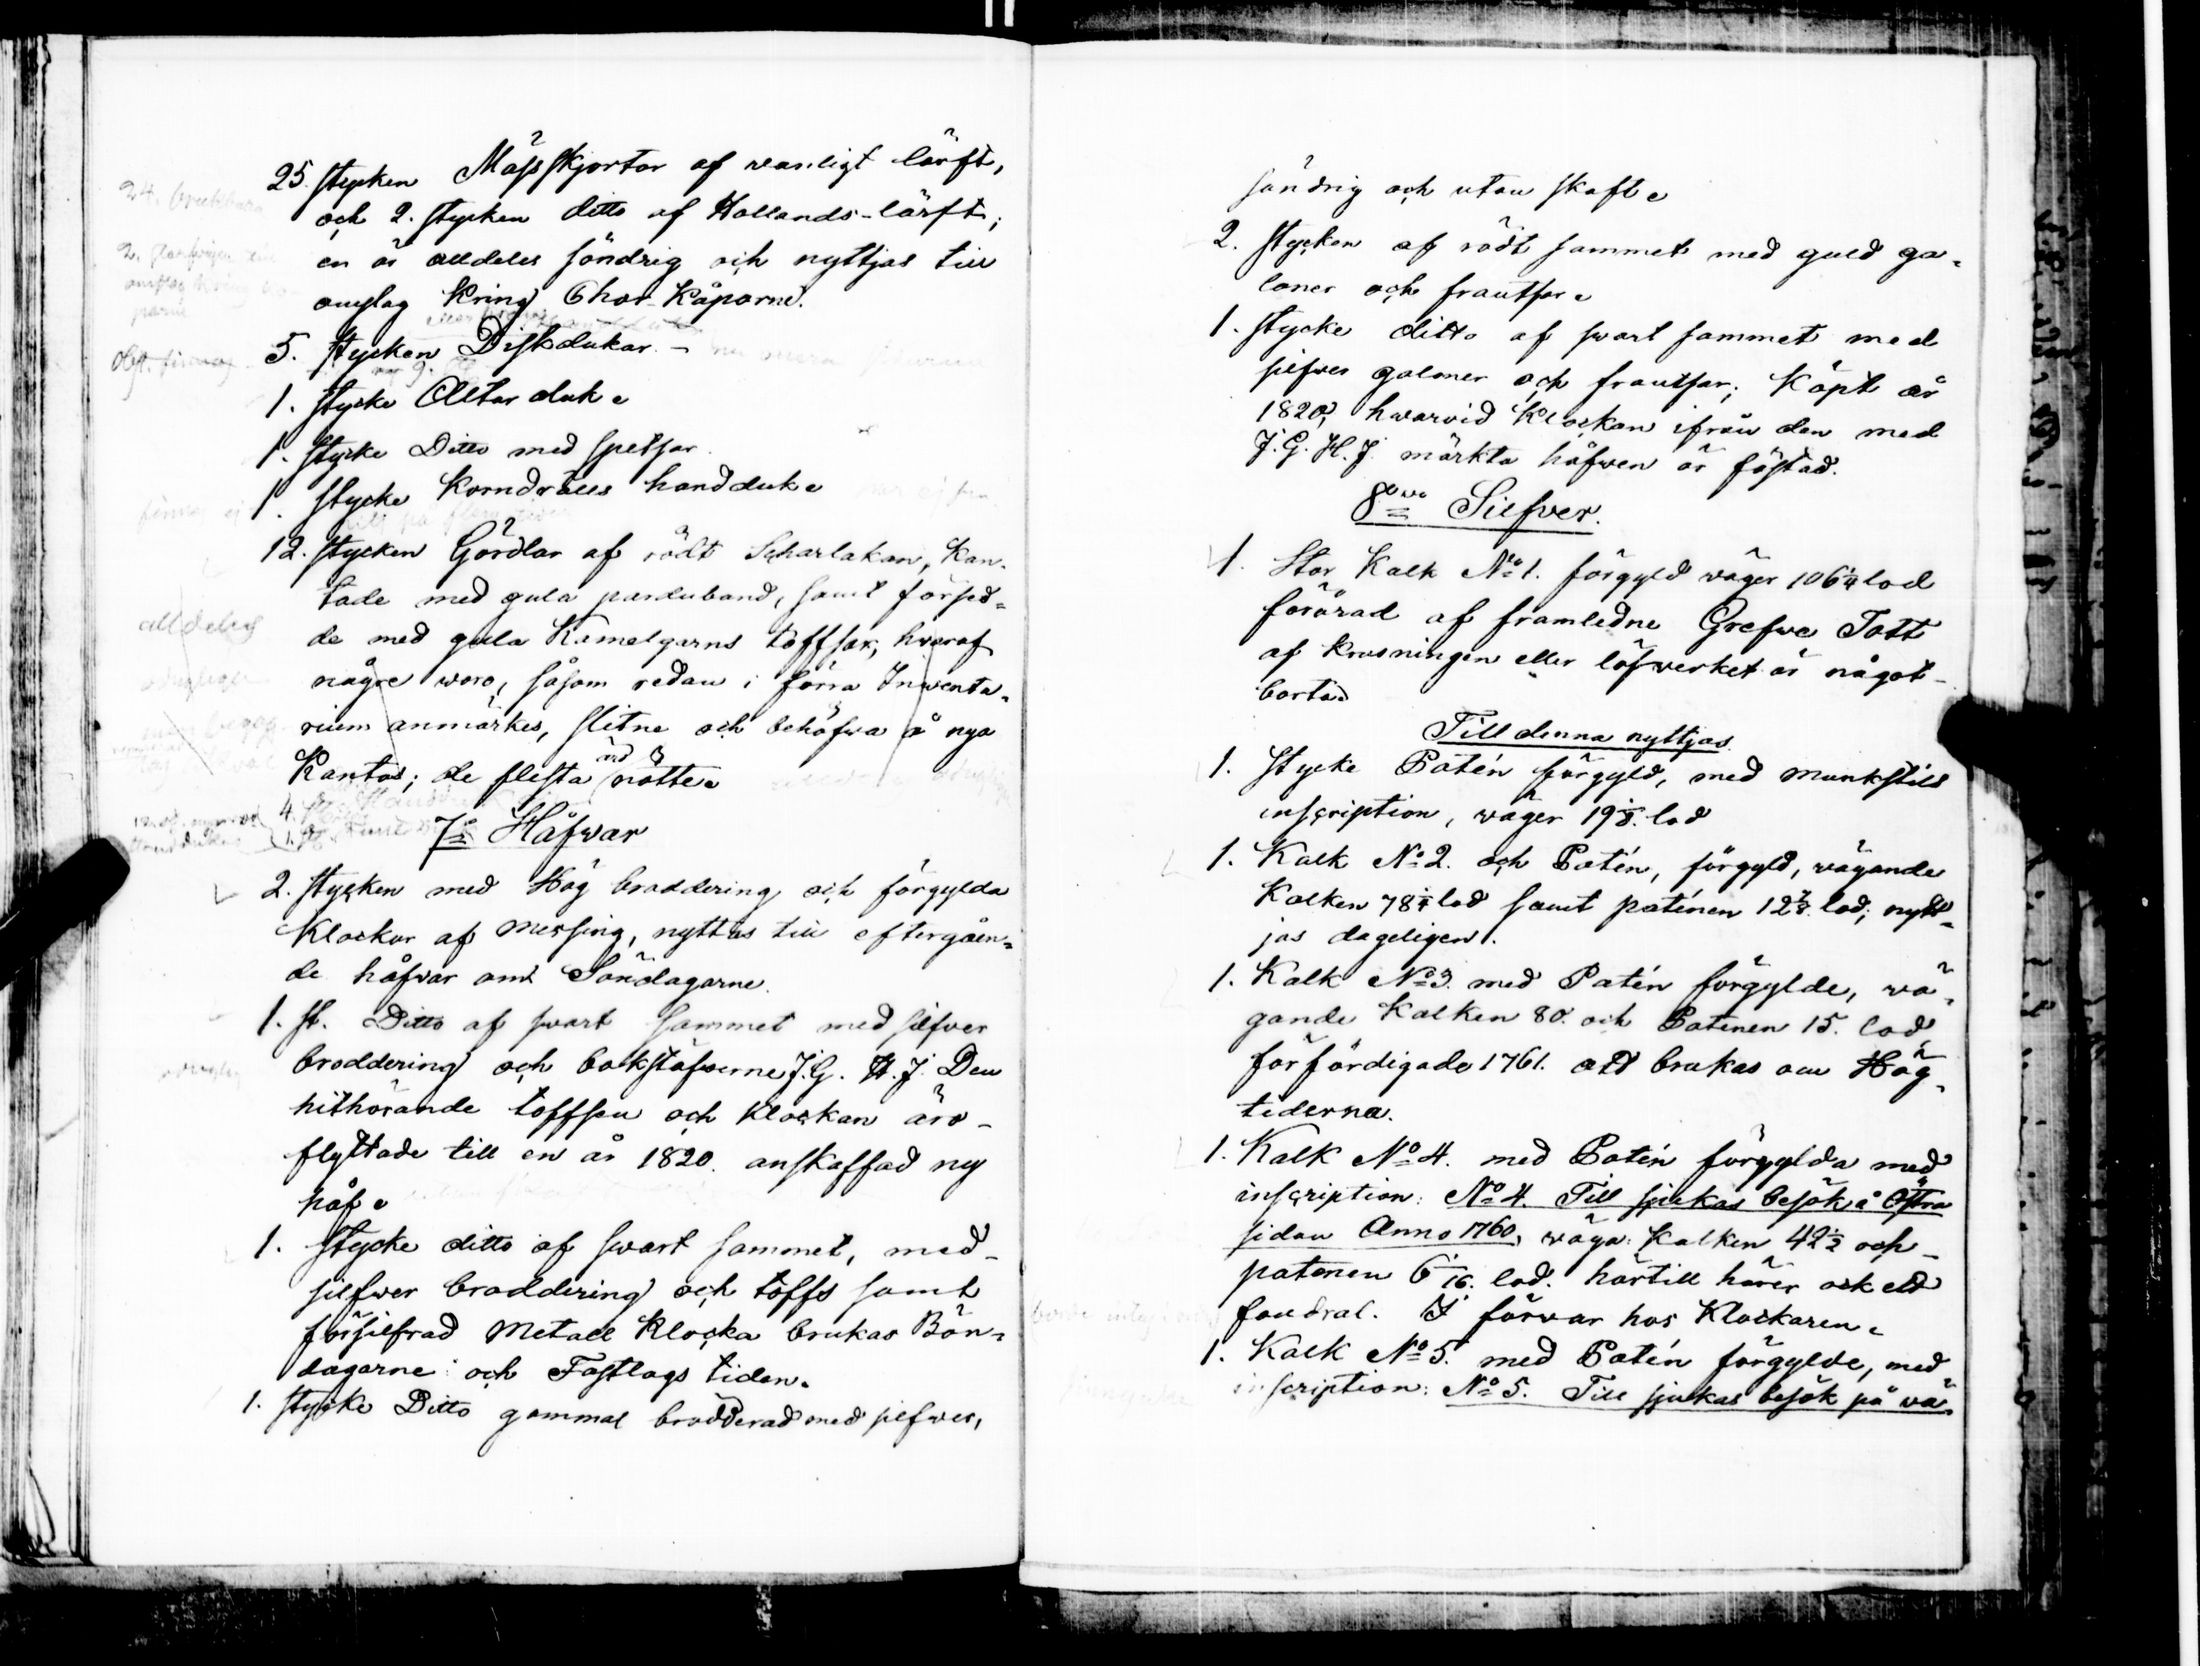 25. stycken Mässskjortor af vanligt lärft,
och 2. stycken ditto af Hollands-lärft;
en är alldeles söndrig och nyttjas till
omslag kring Chor-Kåporne.
5. stycken Diskdukar.
1. stycke Altar duk.
1. stycke Ditto med spetsar.
1. stycke Korndrälls handduk.
12. stycken Gördlar af rödt Scharlakan, kan-
tade med gula parduband, samt försed-
de med gula Kamelgarns toffsar, hvaraf
någre woro, såsom redan i förra Inwenta-
rium anmärkes, slitne och behöfwa å nyo
Kantas; de flesta nötte.
7:o Håfwar
2. stycken med Hög brodering och förgylda
Klockor af messing, nyttias till eftergåen-
de håfvar om Söndagarne.
1. st. Ditto af swart Sammet med silfver
broddering och bokstäfverne J. G. H. J. Den
hithörande toffsen och Klockan äro
flyttade till en år 1820. anskaffad ny
håf.
1. stycke ditto af swart sammet, med
silfwer broddering och toffs samt
försilfrad Metall Klocka brukas Bön-
dagarne och Fastlags tiden.
1. stycke Ditto gammal brodderad med silfwer,
söndrig och utan skaft.
2. stycken af rödt sammet med guld ga-
loner och frantsar.
1. stycke ditto af swart sammet med
silfwer galoner och frantsar; Köpt år
1820, hwarvid Klockan ifrån den med
J. G. H. J. märkta håfwen är fästad.
8:vo Silfver.
1. Stor Kalk No 1. förgyld wäger 106 1/4 lod
förärad af framledne Grefwe Tott
af krusningen eller löfwerket är något
borta.
Till denna nyttjas
1. stycke Patén förgyld, med munkstils
inscription, wäger 19 1/8. lod
1. Kalk No 2. och Patén, förgyld, wägande
Kalken 78 1/4 lod samt paténen 12 7/8. lod; nytt-
jas dageligen.
1. Kalk No 3. med Patén förgylde, wä-
gande Kalken 80. och Patenen 15. lod
förfärdigade 1761. att brukas om Hög-
tiderna.
1. Kalk No 4. med Patén förgylda med
inscription: No 4. Till sjukas besök å Östra
sidan Anno 1760, wäga: Kalken 42 1/2 och
patenen 6 1/16. lod. härtill hörer ock ett
foudral. I förvar hos Klockaren.
1. Kalk No 5. med Patén förgylde, med
inscription: No 5. Till sjukas besök på vä-